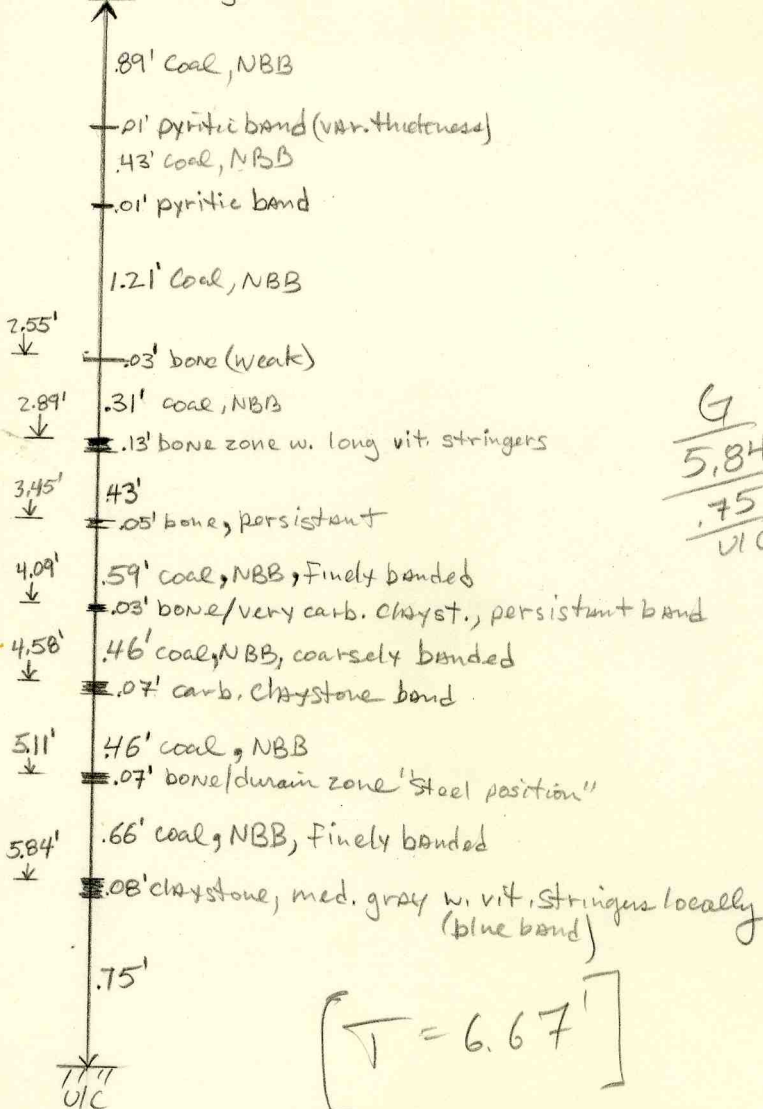 .89' Coal, NBB
.01' pyritic band (var. thickness)
.43' coal, NBB
.01' pyritic band
1.21' Coal, NBB
2.55'
.03' bone (weak)
2.89' .31' coal, NBB
.13' bone zone w. long vit. stringers
3.45' .43'
.05' bone, persistant
4.09' .59' coal, NBB, Finely banded
.03' bone/very carb. clayst., persistant band
4.58' .46' coal, NBB, coarsely banded
.07' carb. claystone band
5.11' .46' coal, NBB
.07' bone/durain zone "Steel position"
5.84' .66' coal, NBB, Finely banded
.08' claystone, med. gray w. vit. stringers locally
(blue band)
.75'
U/C
G
5.84
.75
U/C
[T = 6.67']